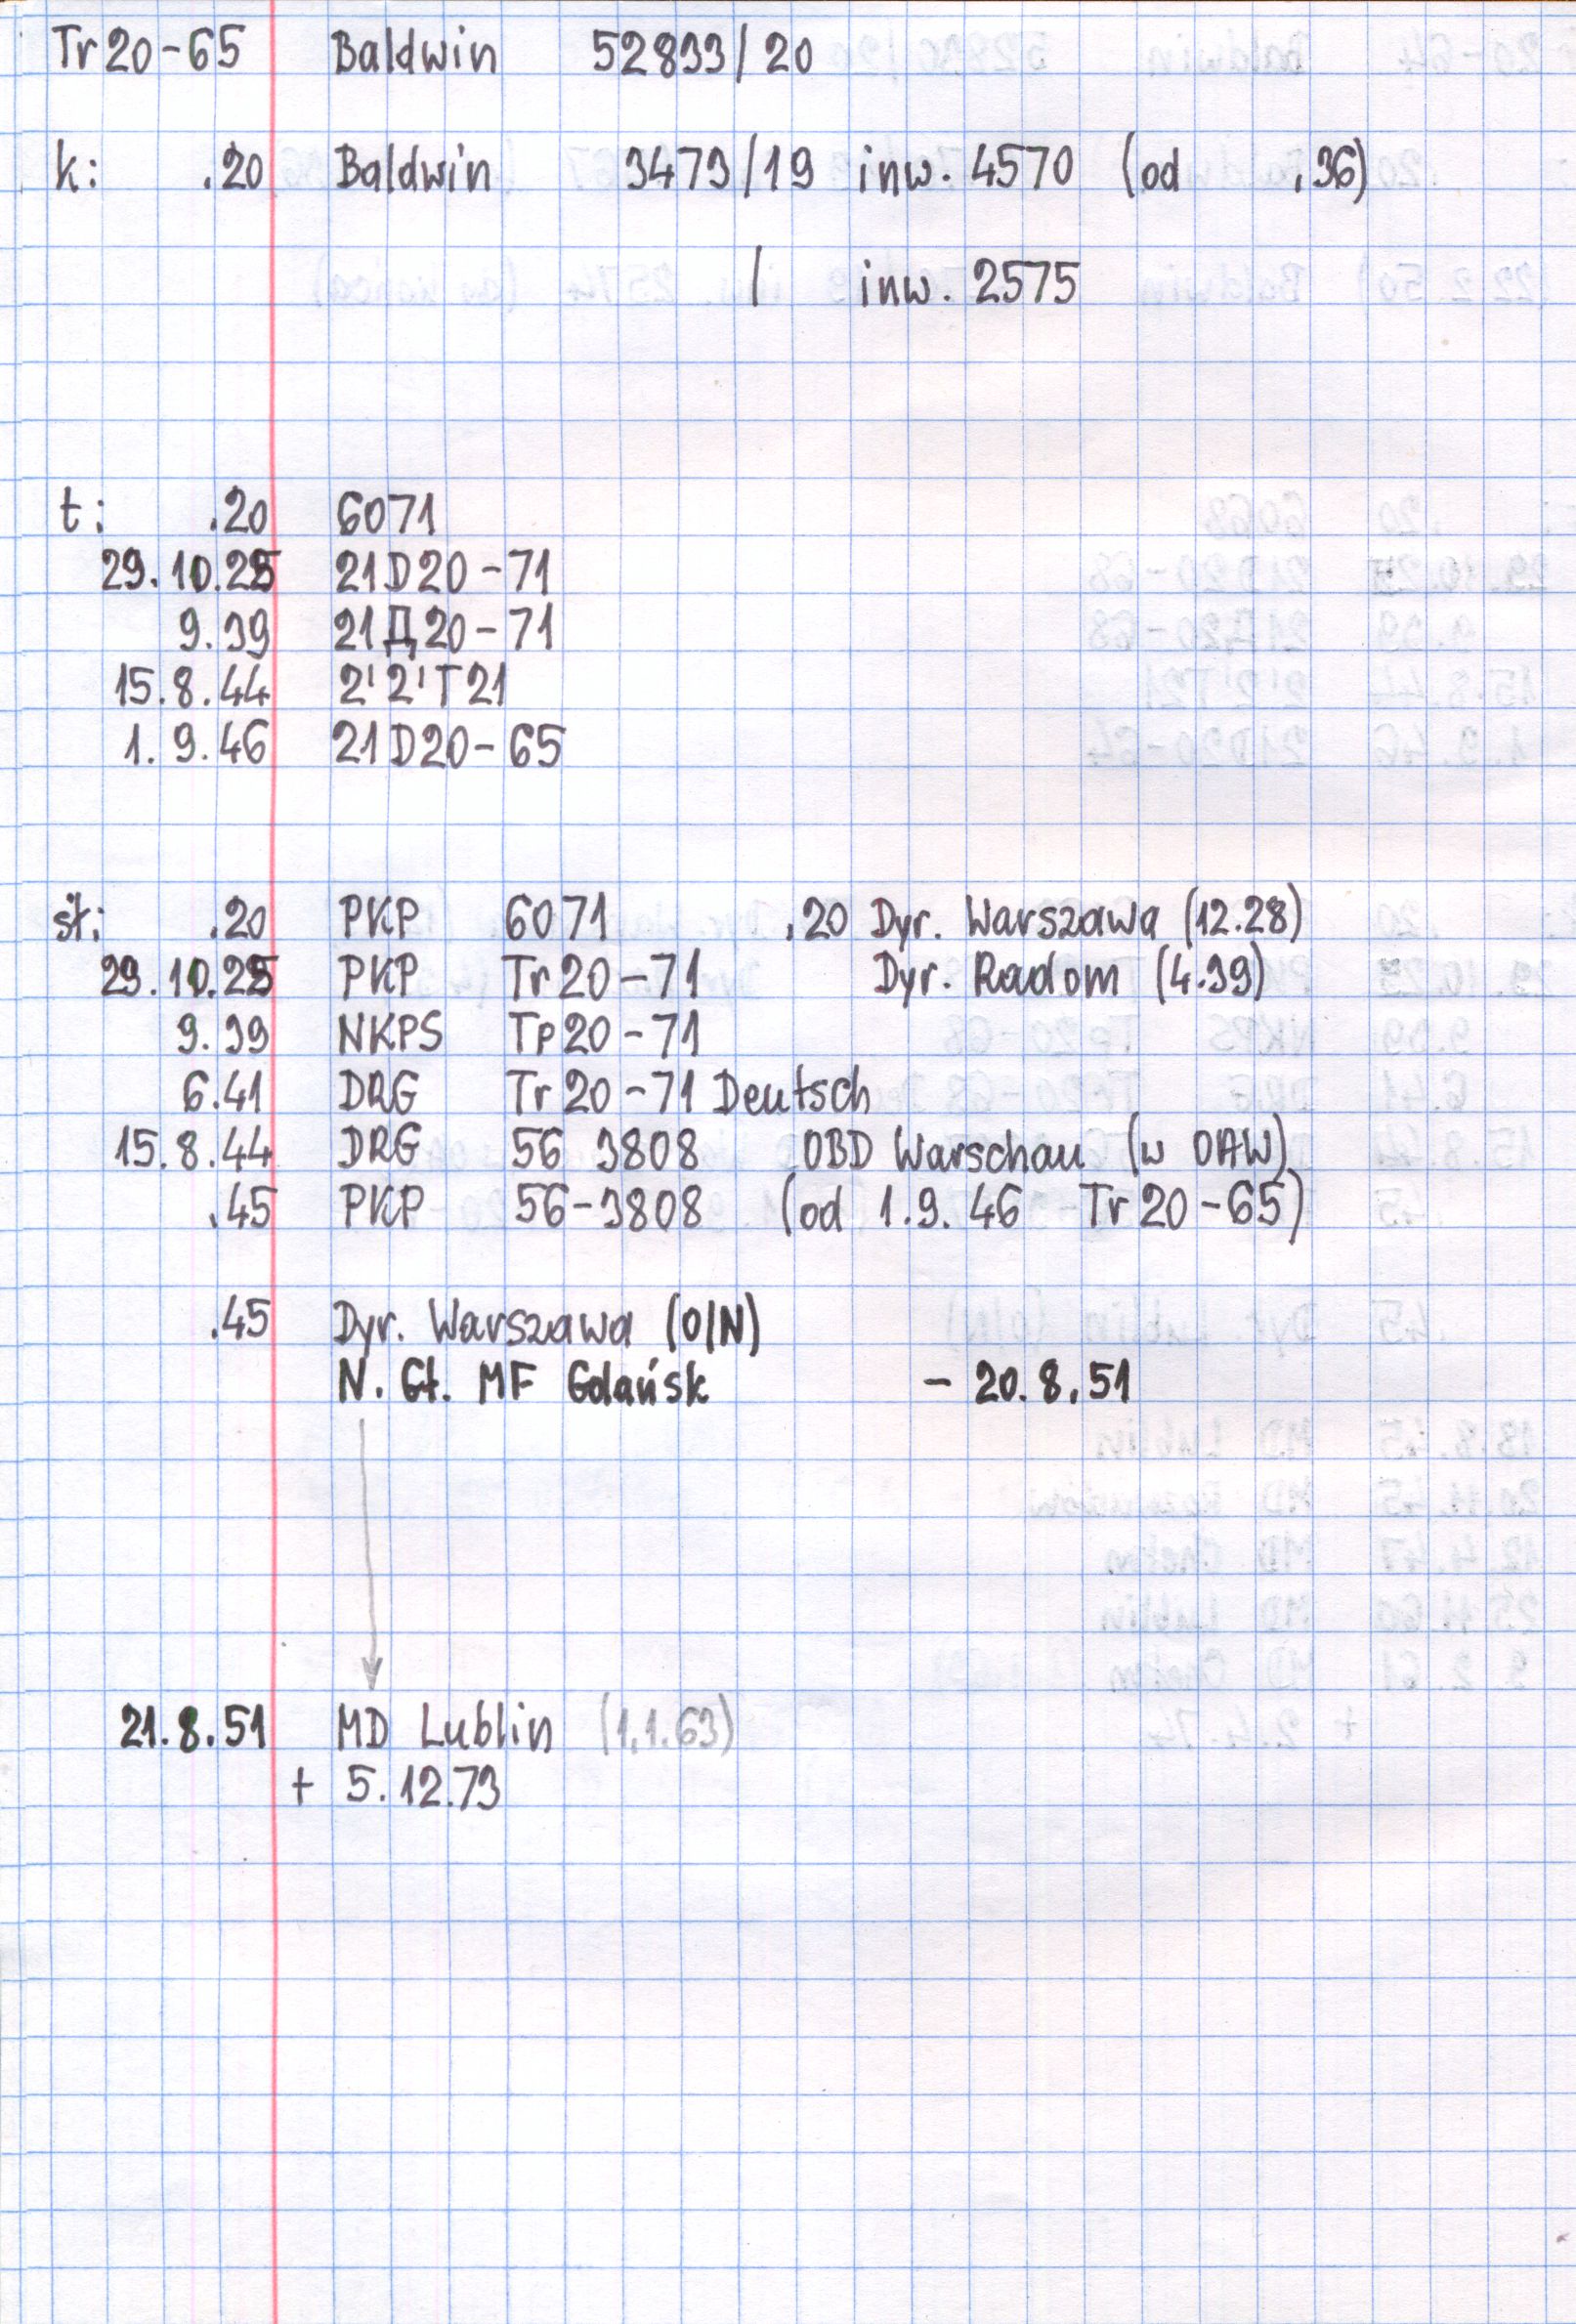 Tr20-65 Baldwin 52833/20
k: .20 Baldwin 3473/19 inw. 4570 (od .36)
/ inw. 2575
t: .20 6071
29.10.25 21D20-71
9.39 21Д20-71
15.8.44 2'2'T21
1.9.46 21D20-65
sł: .20 PKP 6071 .20 Dyr. Warszawa (12.28)
29.10.25 PKP Tr20-71 Dyr. Radom (4.39)
9.39 NKPS Tp20-71
6.41 DRG Tr20-71 Deutsch
15.8.44 DRG 56 3808 OBD Warschau (w OAW)
.45 PKP 56-3808 (od 1.9.46 Tr20-65)
.45 Dyr. Warszawa (O/N)
N. Gł. MF Gdańsk - 20.8.51
21.8.51 MD Lublin (1.1.63)
+ 5.12.73